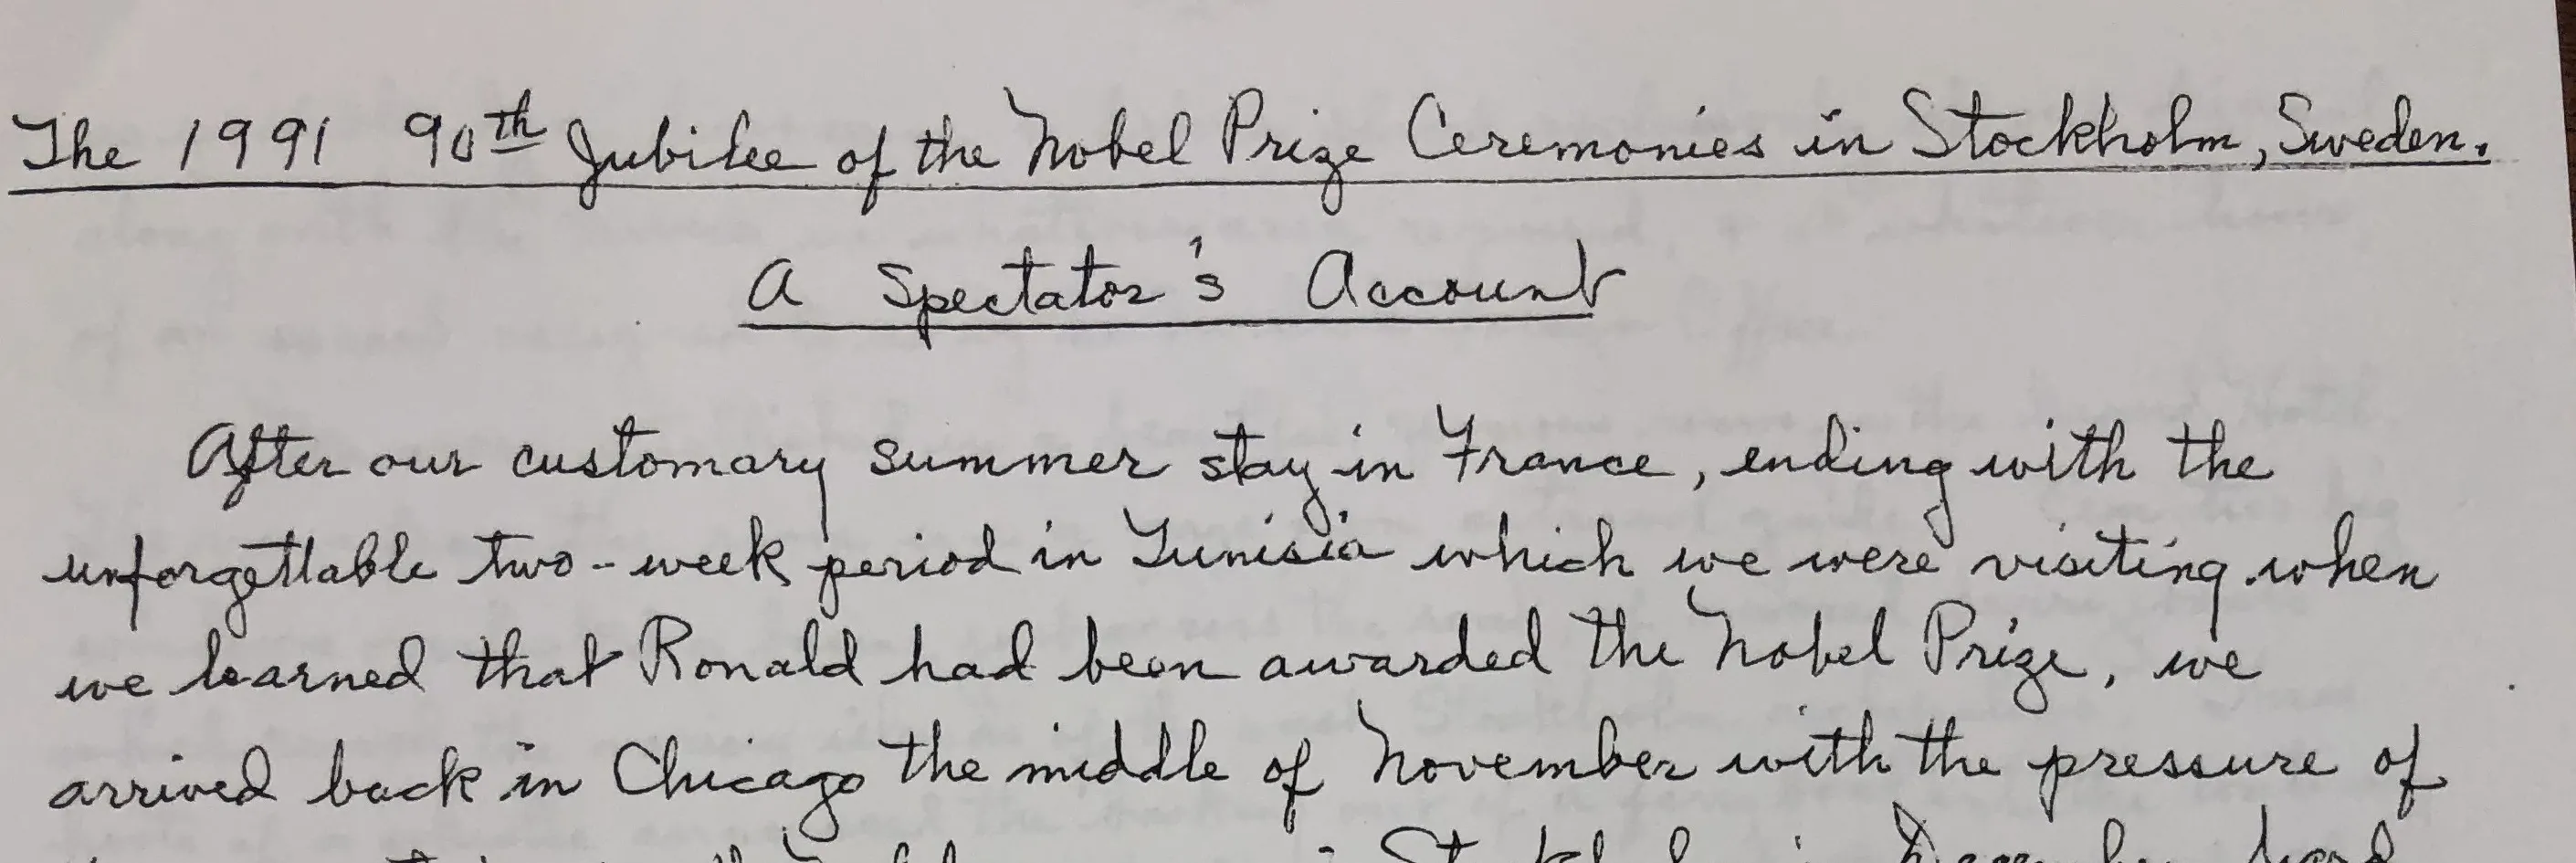 The 1991 90th Jubilee of the Nobel Prize Ceremonies in Stockholm, Sweden.
A Spectator's Account
After our customary summer stay in France, ending with the
unforgettable two-week period in Tunisia which we were visiting when
we learned that Ronald had been awarded the Nobel Prize, we
arrived back in Chicago the middle of November with the pressure of